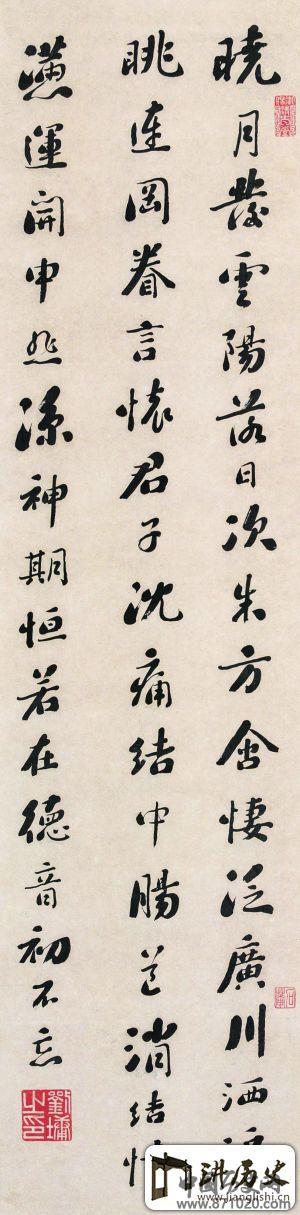 曉月發雲陽落日次朱方含悽泛廣川洒淚
眺連岡眷言懷君子沈痛結中腸道消結憤
懣運開申悲涼神期恒若在德音初不忘
劉墉之印
石庵
讲历史
www.jianglishi.cn
www.871020.com